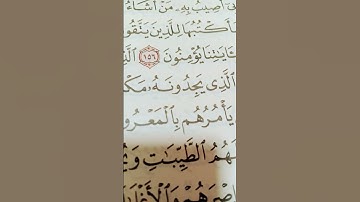 أُصِيبُ بِهِۦ مَنْ أَشَآءُ
أَكْتُبُهَا لِلَّذِينَ يَتَّقُو
بِـَٔايَٰتِنَا يُؤْمِنُونَ ١٥٦
ٱلَّذِى يَجِدُونَهُۥ مَكْ
يَأْمُرُهُم بِٱلْمَعْرُو
هُمُ ٱلطَّيِّبَٰتِ وَيُ
صْرَهُمْ وَٱلْأَغْلَٰ